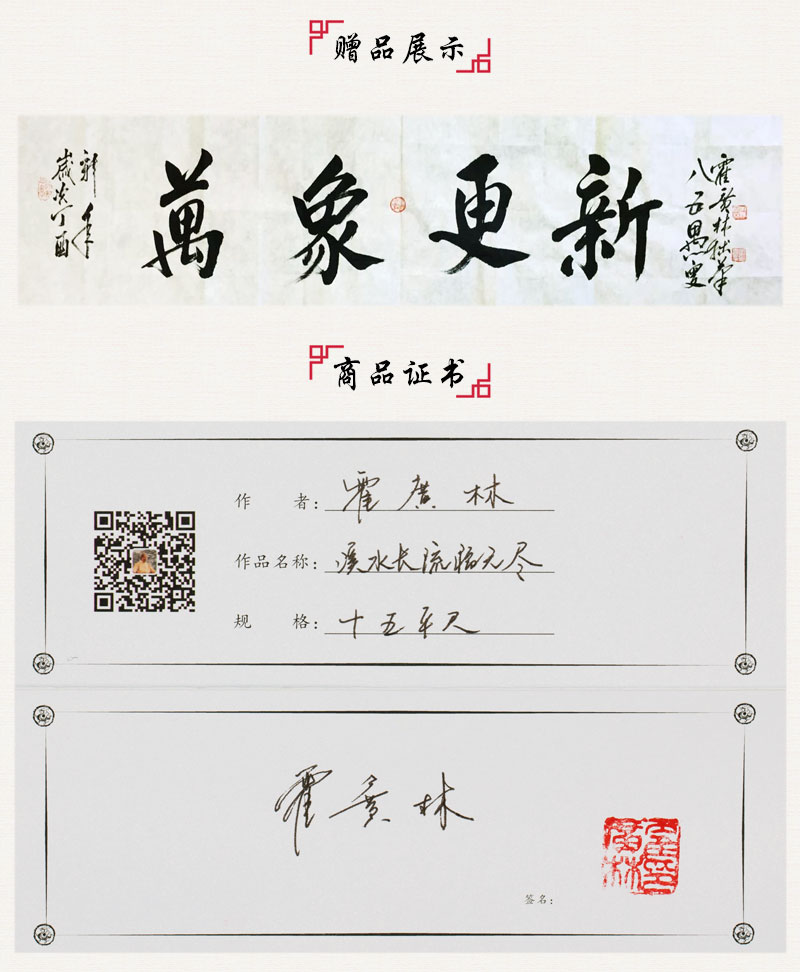 赠品展示
萬象更新
新年
歲次丁酉
霍廣林
八五愚叟
商品证书
作 者：霍廣林
作品名称：溪水长流无尽
规 格：十五平尺
霍廣林
签名：